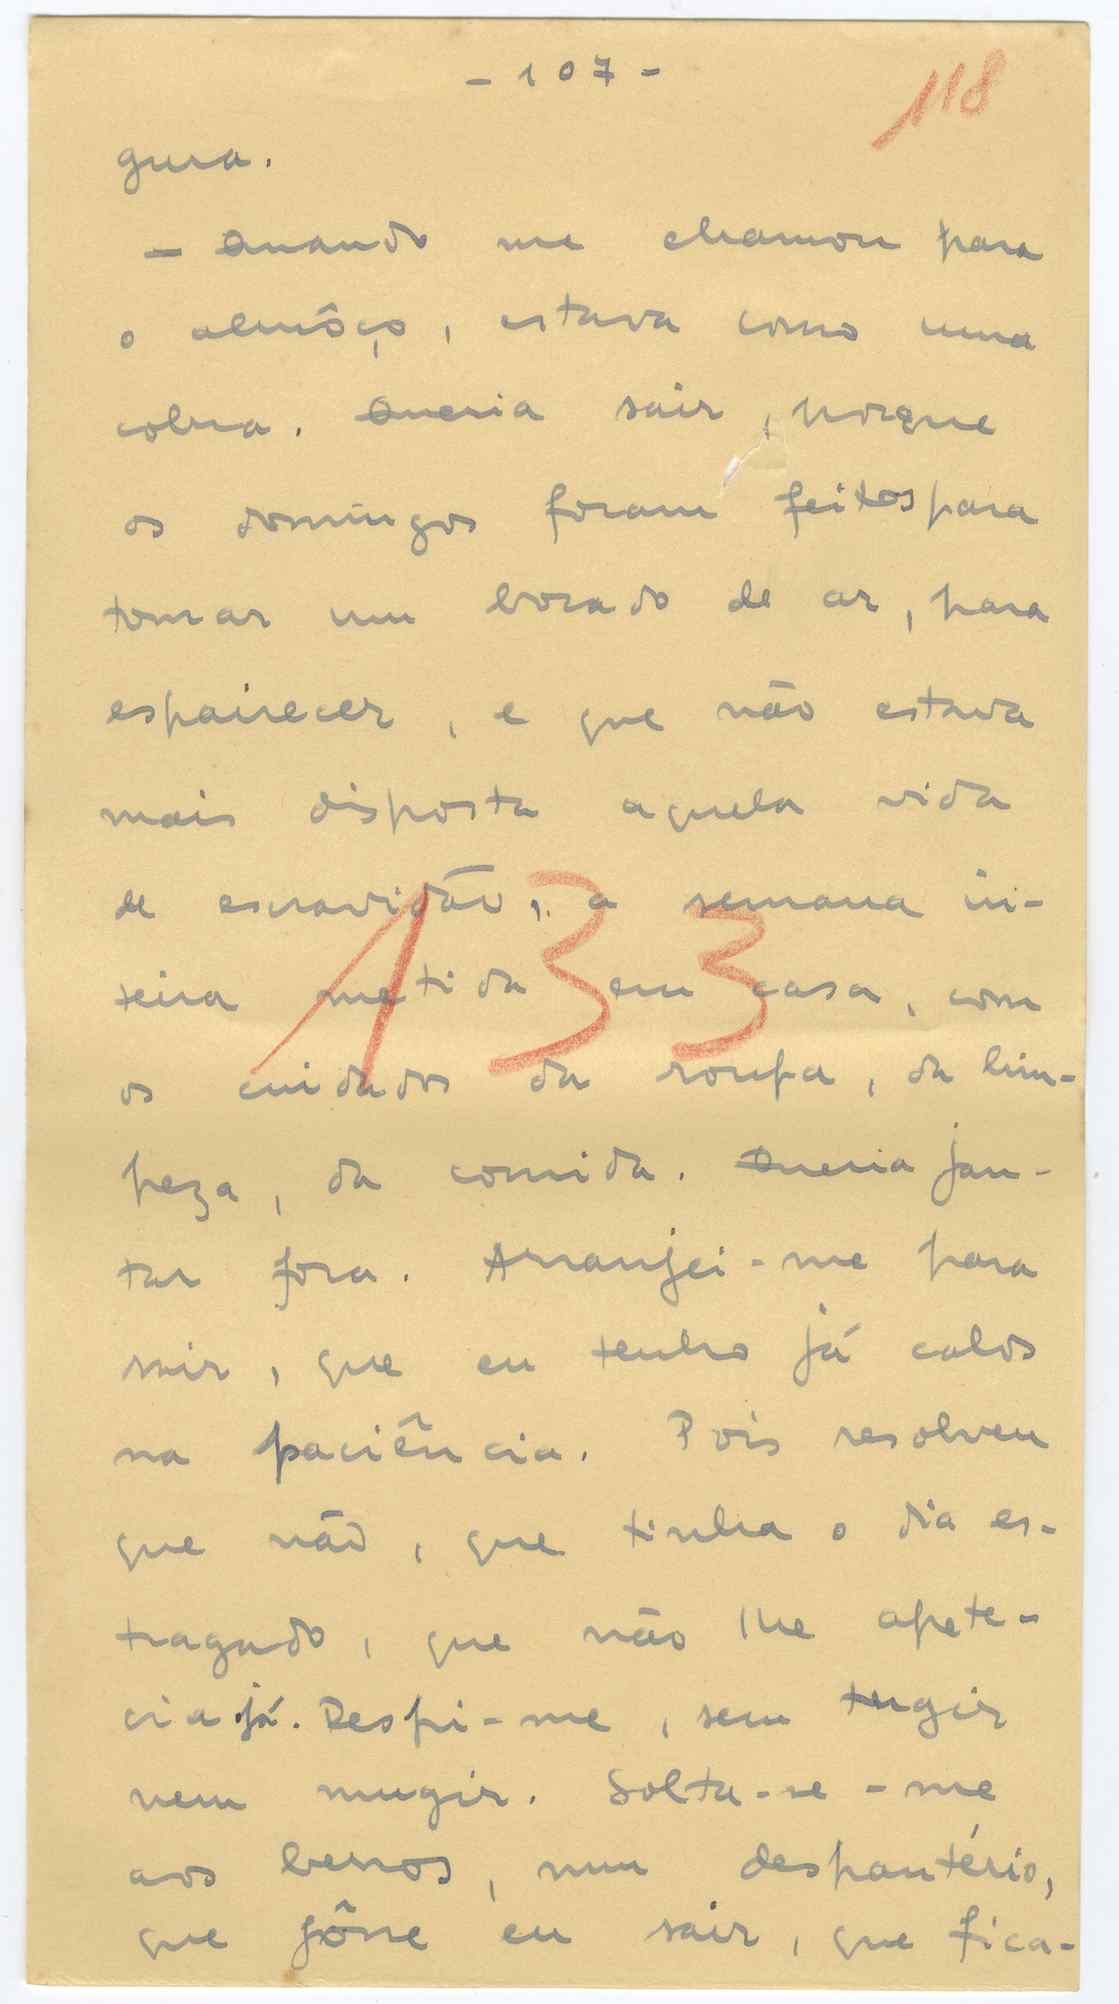 - 107 -
118
gura.
- Quando me chamou para
o almôço, estava como uma
cobra. Queria sair, porque
os domingos foram feitos para
tomar um bocado de ar, para
espairecer, e que não estava
mais disposta aquela vida
de escravidão, a semana in-
teira metida em casa, com
133
os cuidados da roupa, da lim-
peza, da comida. Queria jan-
tar fora. Arranjei-me para
sair, que eu tenho já calos
na paciência. Pois resolveu
que não, que tinha o dia es-
tragado, que não lhe apete-
cia já. Despi-me, sem tugir
nem mugir. Solta-se-me
aos berros, num despautério,
que fôsse eu sair, que fica-